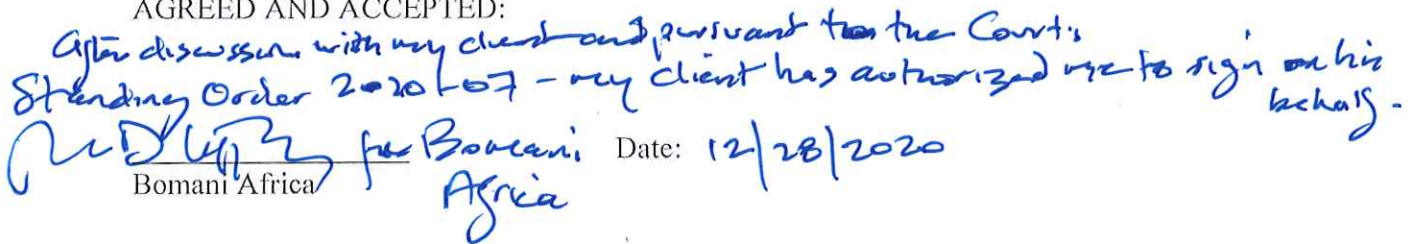 AGREED AND ACCEPTED:
After discussion with my client and pursuant to the Court's
Standing Order 2020-07 - my client has authorized me to sign on his
behalf.
for Bomani Date: 12/28/2020
Bomani Africa Africa